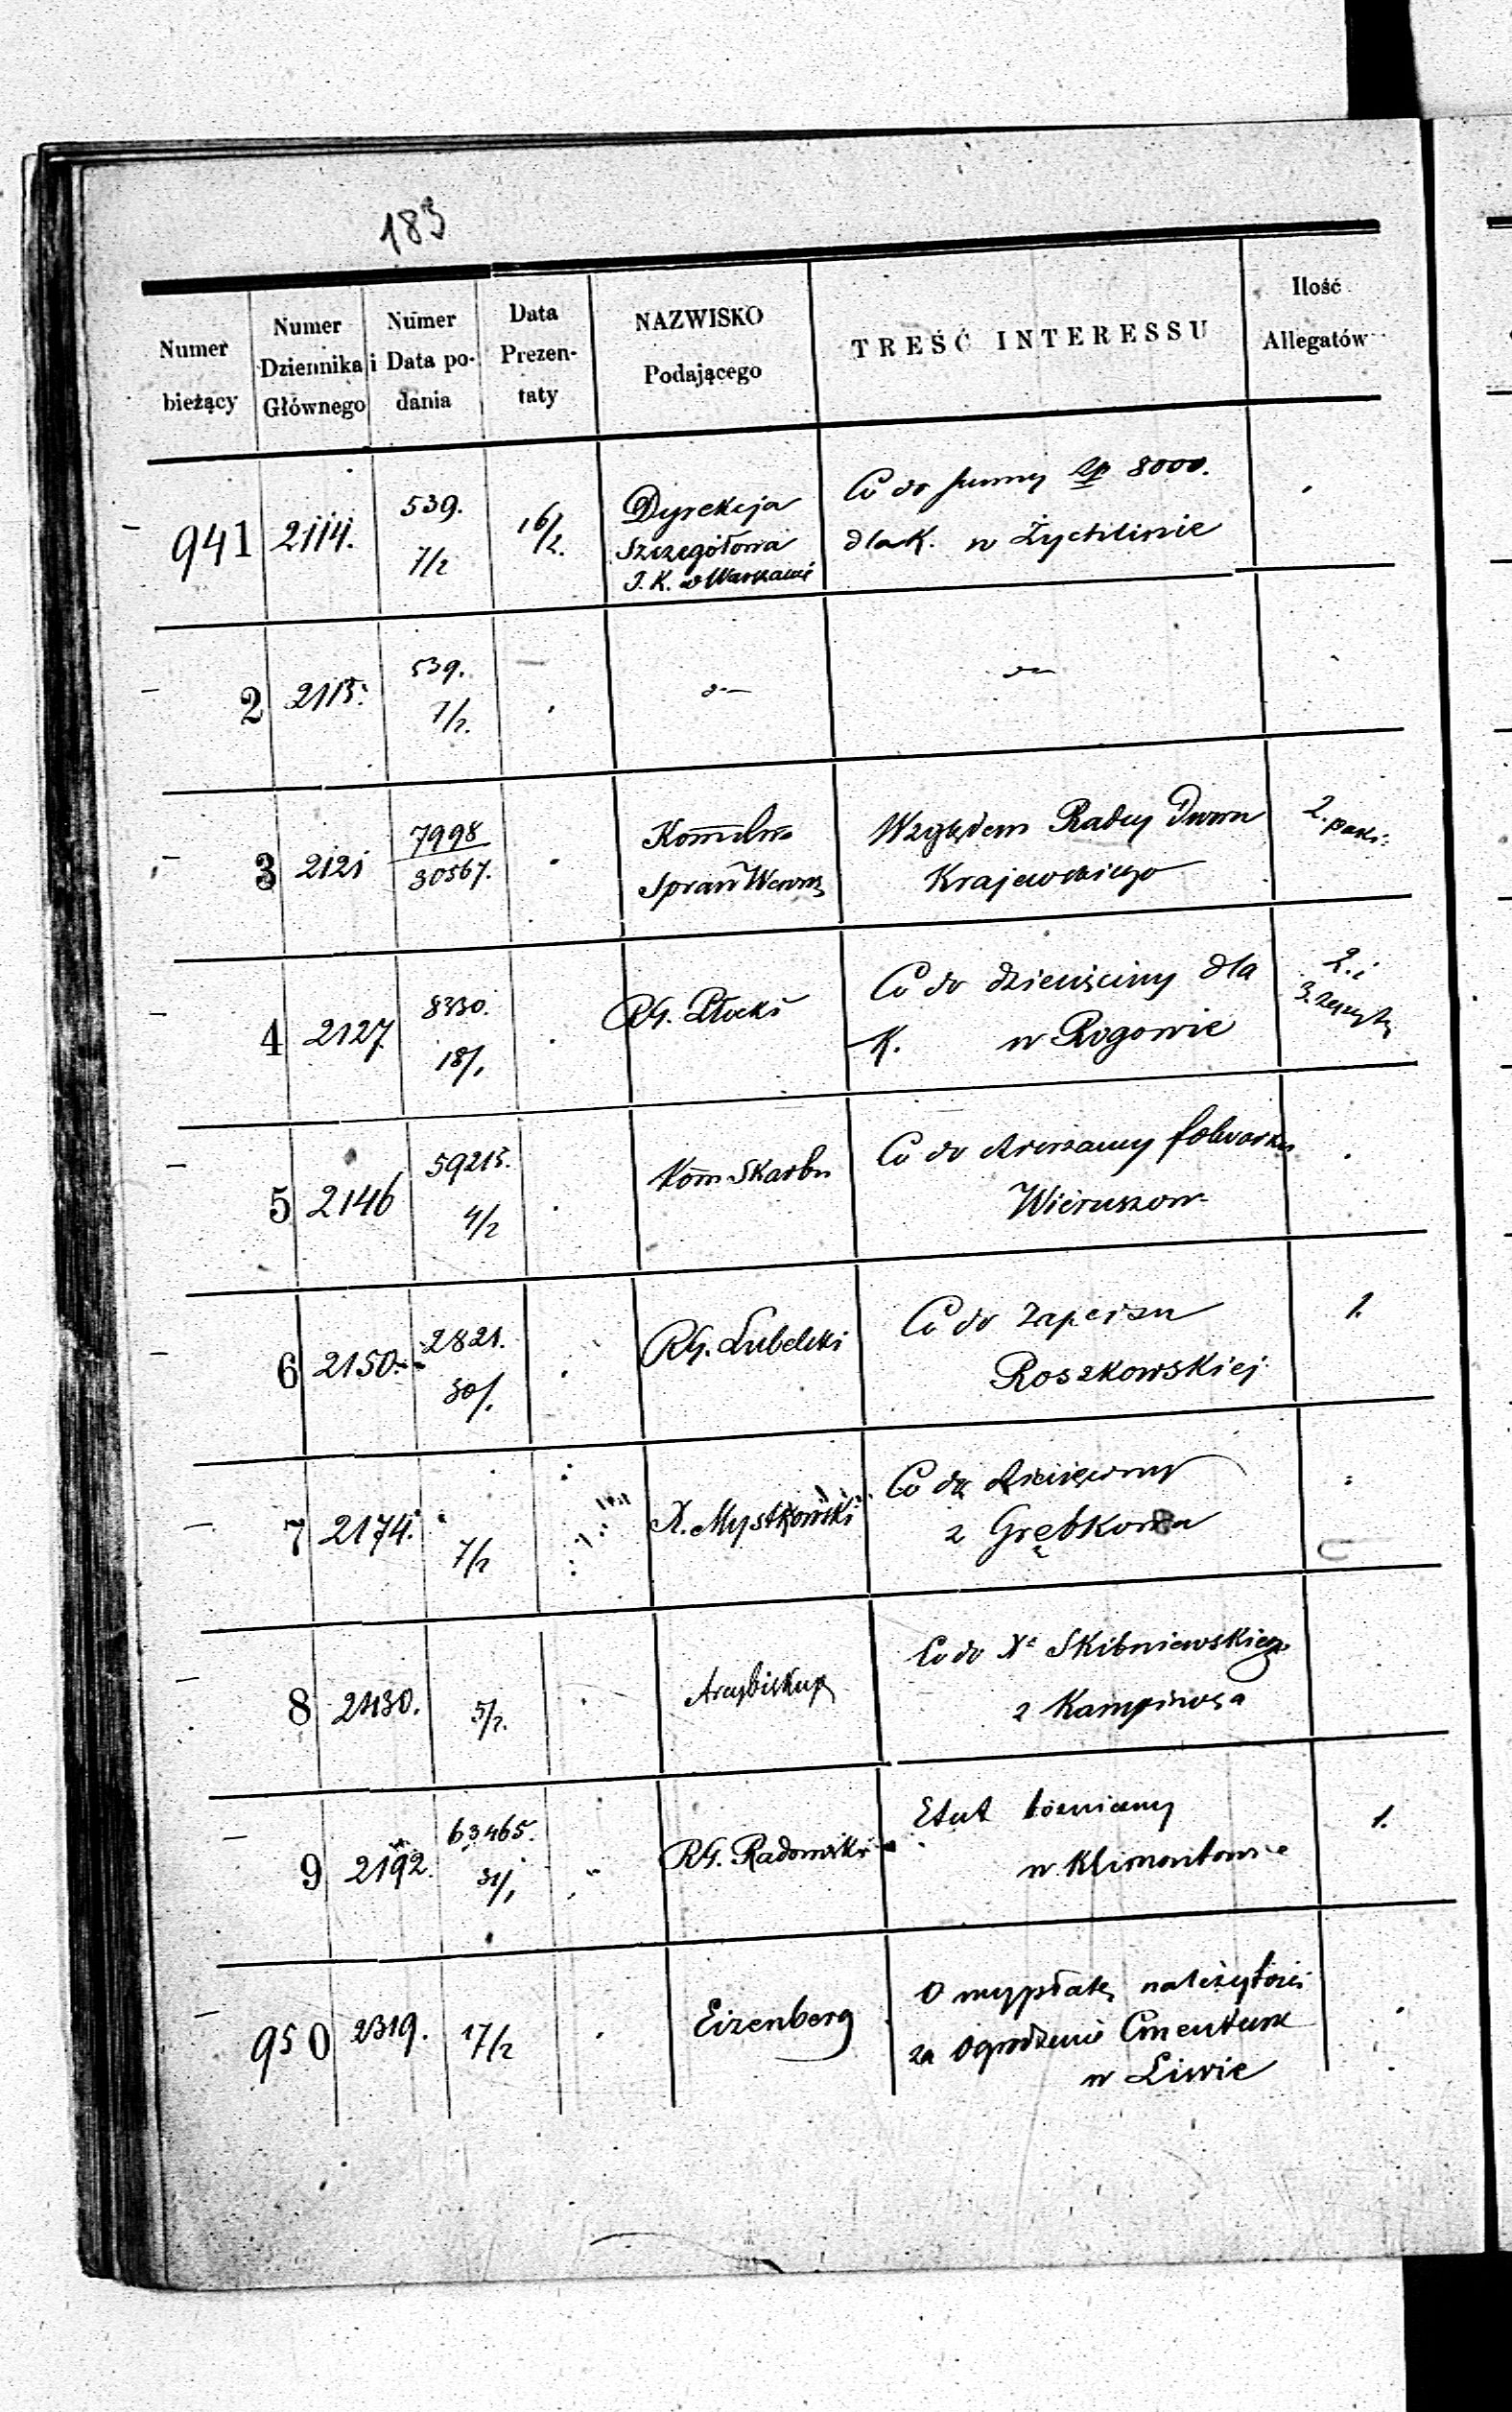 183
Numer bieżący
Numer Dziennika Głównego
Numer i Data podania
Data Prezentaty
NAZWISKO Podającego
TREŚĆ INTERESSU
Ilość Allegatów
941 2114. 539. 7/2 16/2. Dyrekcja Szczegółowa T. K. w Warszawie
Co do summy Zp 8000.
dla K. w Żychlinie
2 2115. 539. 7/2.
3 2121 7998 30567. Spraw Wewn
Względem Radcy Dworu
Krajewskiego
2. pak:
4 2127 8330. 18/1 RG. Płocki
Co do dziesięciny dla
K. w Rogowie
2. i
3. zeszyty
5 2146 59215. 4/2 Kom Skarbu
Co do dzierzawy folwarku
Wieruszow
6 2150. 2821. 30/1. RG. Lubelski
Co do zapisu
Roszkowskiej
1.
7 2174. 7/2 X. Mystkowski
Co do dziesięciny
z Grębkowa
8 5/2. Arcybiskup
Co do Xa Skibniewskiego
z Kampinosa
9 2192. 63465. 31/1 RG. Radomski
Etat
w Klimontowie
1.
950 2319. 17/2 Eizenberg
O wypłatę należytości
za ogrodzenie Cmentarza
w Liwie